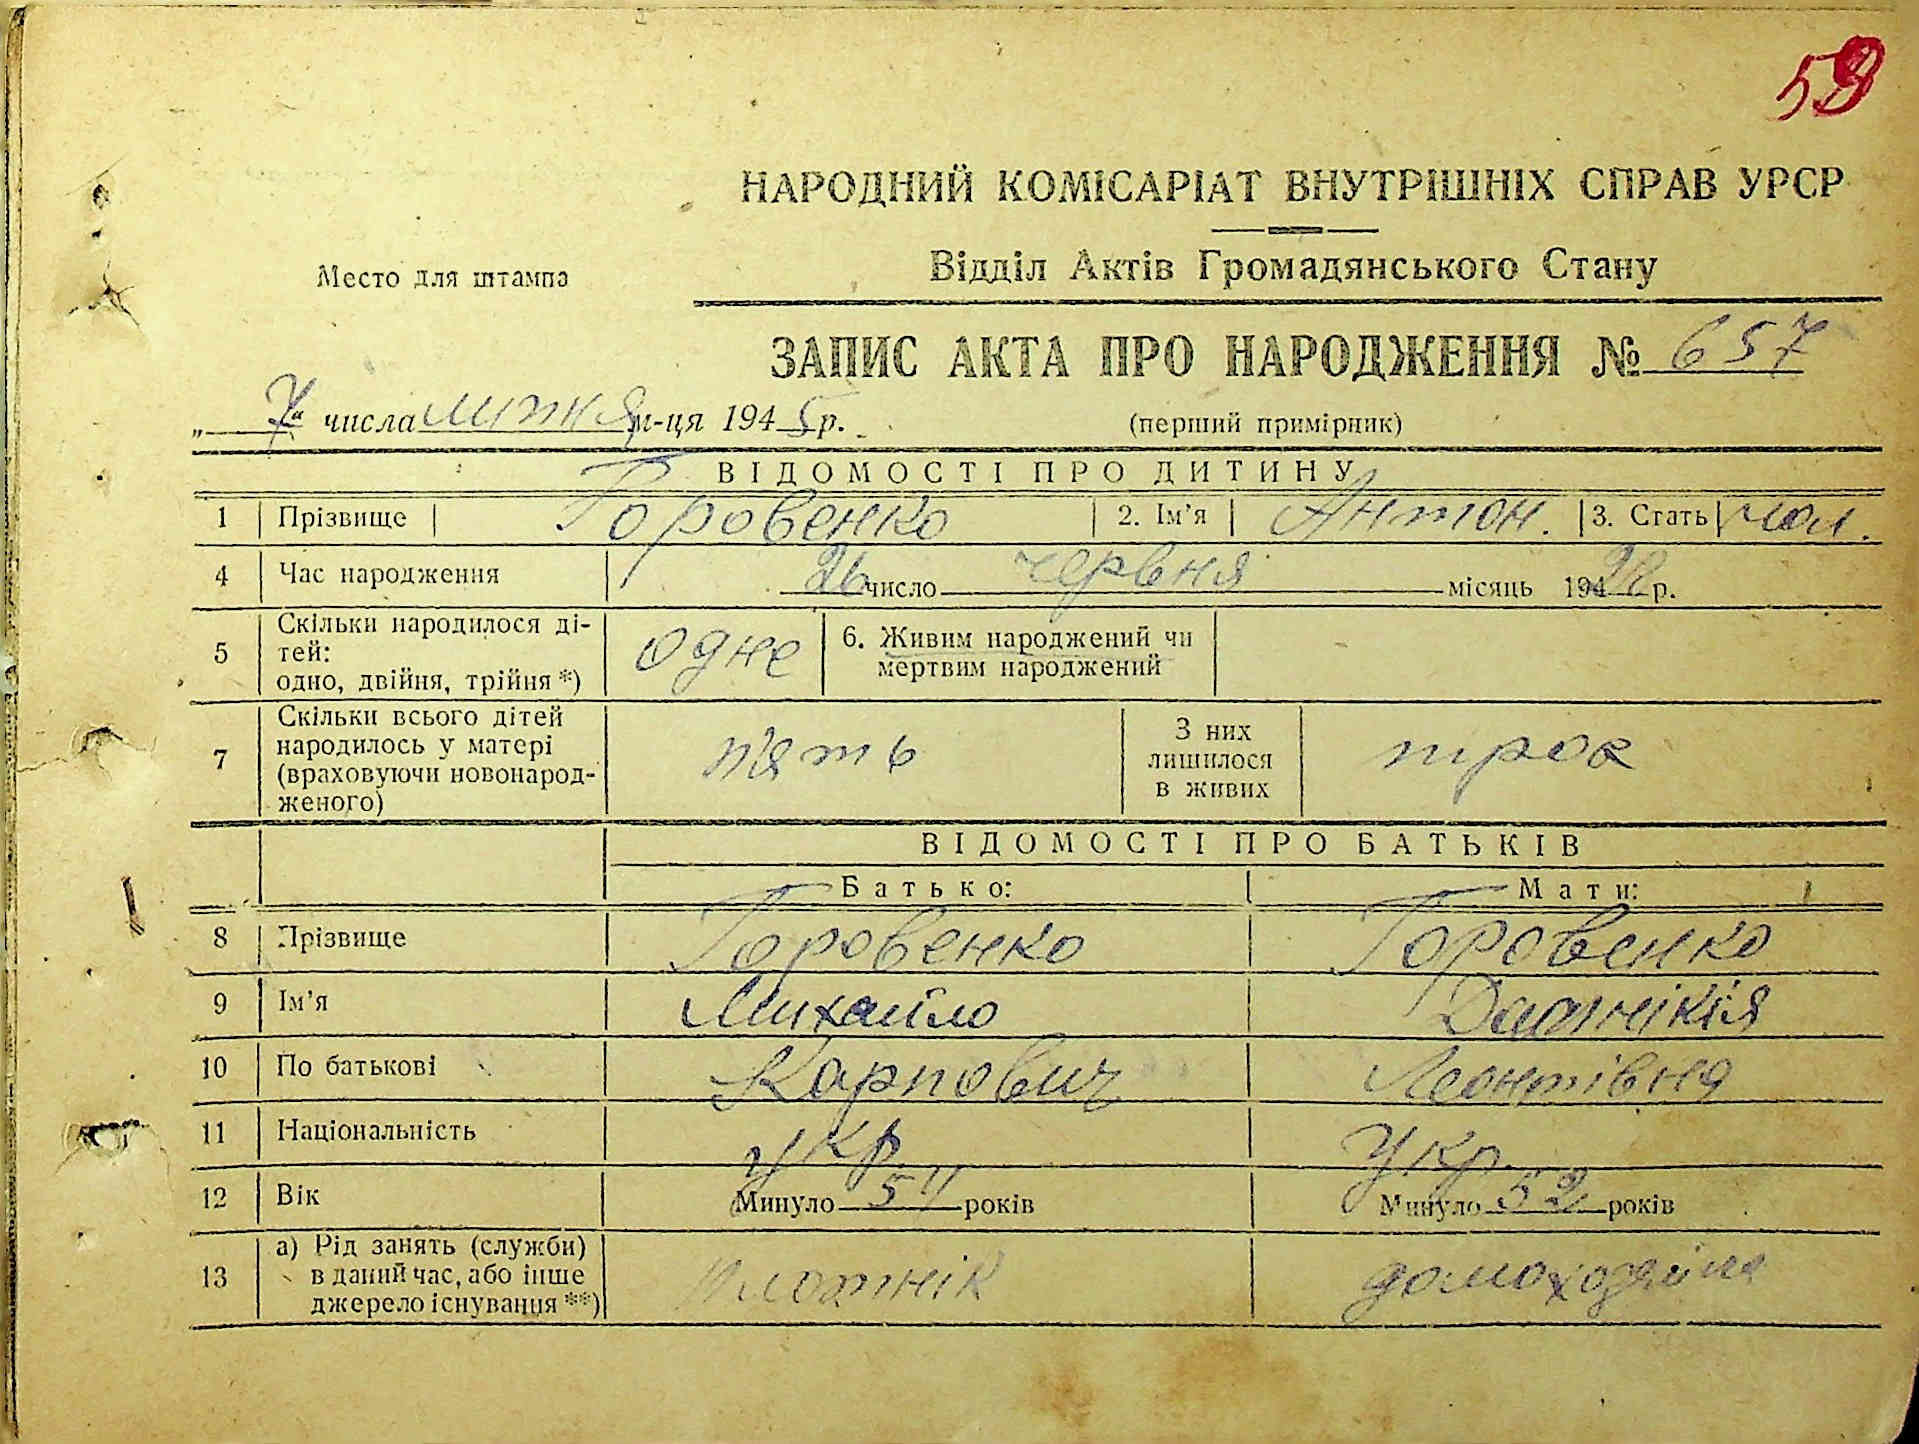 59
НАРОДНИЙ КОМІСАРІАТ ВНУТРІШНІХ СПРАВ УРСР
Место для штампа
Відділ Актів Громадянського Стану
ЗАПИС АКТА ПРО НАРОДЖЕННЯ № 657
„ 7 “ числа липня м-ця 1945 р.
(перший примірник)
ВІДОМОСТІ ПРО ДИТИНУ
1 Прізвище Горовенко 2. Ім’я Антон. 3. Стать чол.
4 Час народження 26 число червня місяць 1928 р.
5 Скільки народилося ді-
тей:
одно, двійня, трійня *) одне 6. Живим народжений чи
мертвим народжений
7 Скільки всього дітей
народилось у матері
(враховуючи новонарод-
женого) п'ять З них
лишилося
в живих троє
ВІДОМОСТІ ПРО БАТЬКІВ
Батько: Мати:
8 Прізвище Горовенко Горовенко
9 Ім’я Михайло
10 По батькові Карпович Леонтівна
11 Національність укр Укр
12 Вік Минуло 54 років Минуло 52 років
13 а) Рід занять (служби)
в даний час, або інше
джерело існування **) плотнік